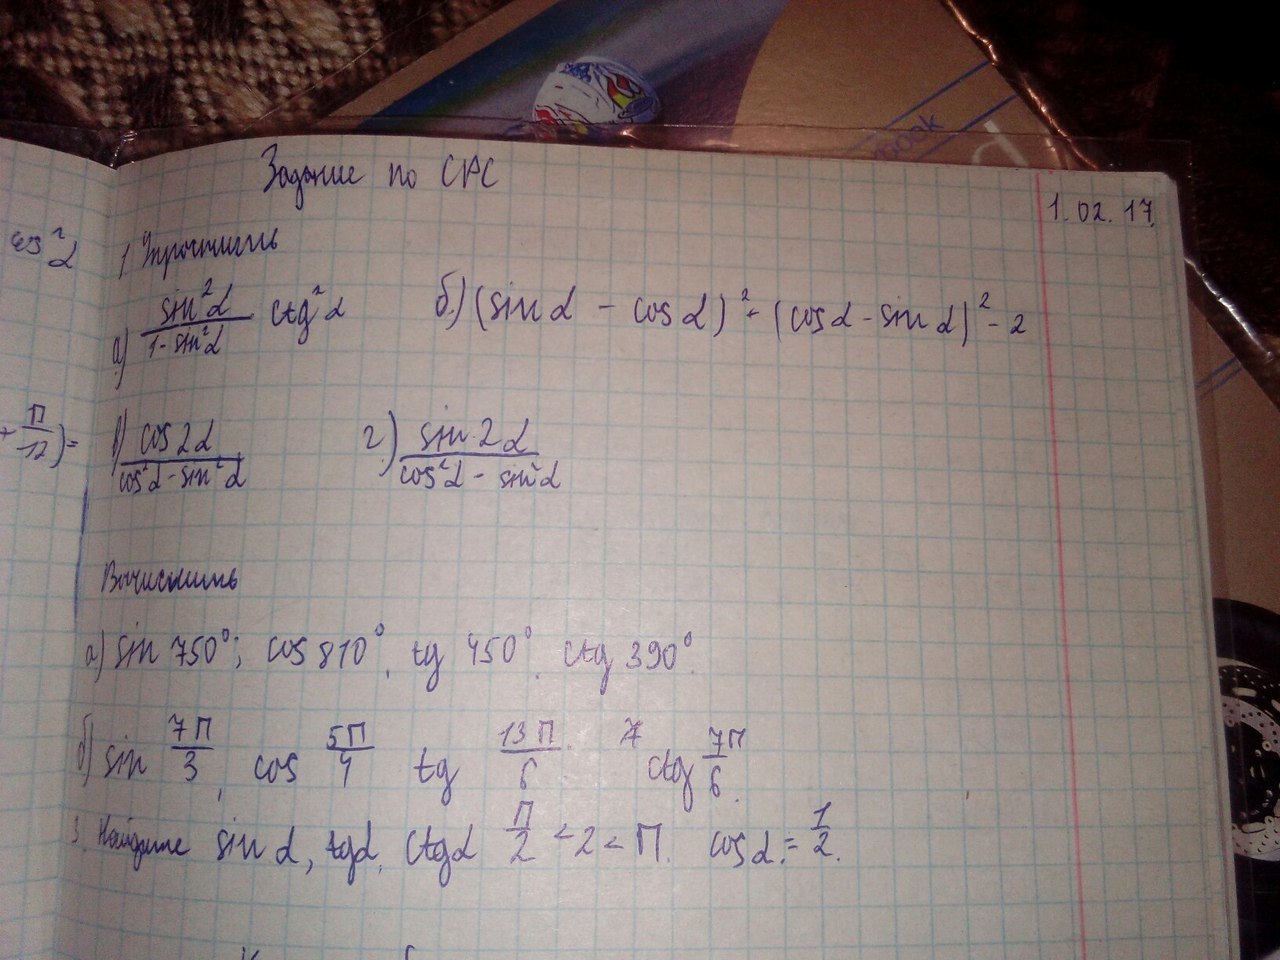 Задание по СРС
1.02.17.
cos²α
1 Упростить
а) sin²α / 1-sin²α ctg²α б.) (sin α - cos α)² - (cos α - sin α)² - 2
+ П/12) =
в) cos 2α / cos²α - sin²α г.) sin 2α / cos²α - sin²α
Вычислить
а) sin 750°; cos 810°, tg 450°. ctg 390°.
б) sin 7П/3, cos 5П/4 tg 13П/6. ctg 7П/6.
3. Найдите sin α, tgα, ctgα П/2 < 2 < П. cos α = 1/2.
book